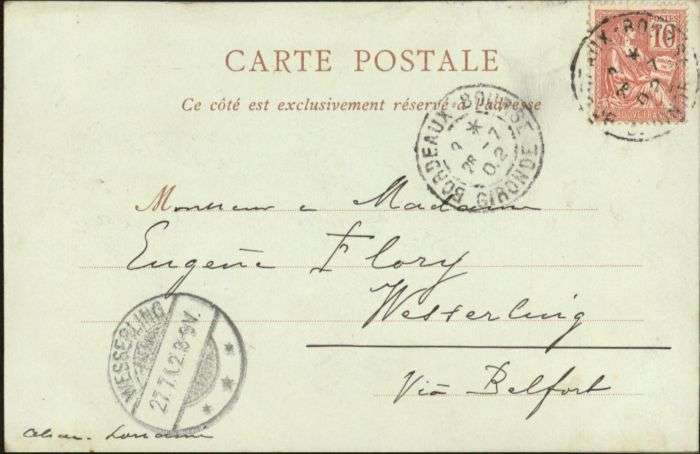 CARTE POSTALE
Ce côté est exclusivement réservé à l'adresse
POSTES
10
BORDEAUX - BOURSE
GIRONDE
2 * 
26 - 7
02
BORDEAUX-BOURSE
GIRONDE
Monsieur & Madame
Eugène Flory
Wesserling
Via Belfort
WESSERLING
27.7.02.8-9V.
* * *
Alsace-Lorraine